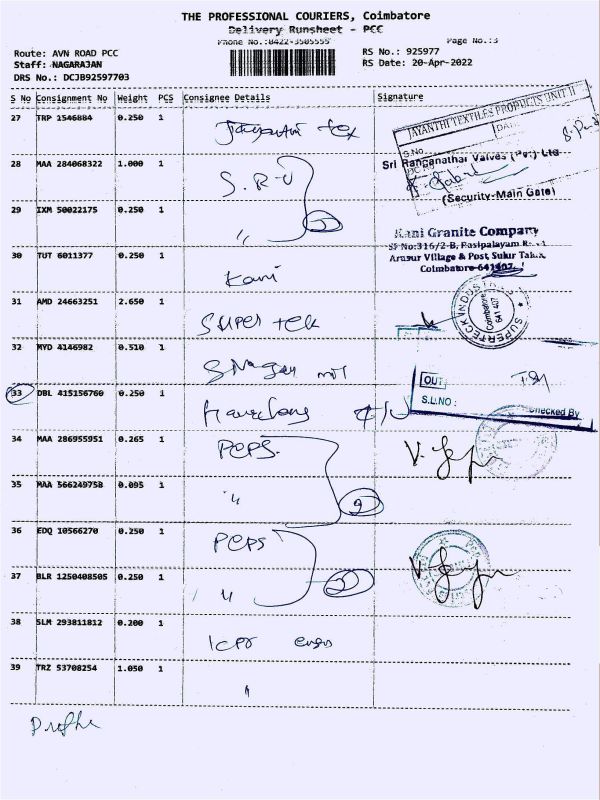 THE PROFESSIONAL COURIERS, Coimbatore
Delivery Runsheet - PCC
Phone No.:0422-3505555
Page No.:3
Route: AVN ROAD PCC
RS No.: 925977
Staff: NAGARAJAN
RS Date: 20-Apr-2022
DRS No.: DCJB92597703
S No Consignment No Weight PCS Consignee Details Signature
27 TRP 1546884 0.250 1 tex
JAYANTHI TEXTILES PRODUCTS UNIT II
28 MAA 284068322 1.000 1 S.R.U
Sri Ranganathar Valves (P) Ltd
(Security-Main Gate)
29 IXM 50022175 0.250 1 "
Kani Granite Company
SF No:316/2-B, Pasipalayam
Arasur Village & Post, Sulur Taluk,
Coimbatore-641407.
30 TUT 6011377 0.250 1 Kani
31 AMD 24663251 2.650 1 Super tek
SUPERTECK INDUSTRIES
Coimbatore
641 407
32 MYD 4146982 0.510 1
OUT
S.L.NO :
Checked By
33 DBL 415156760 0.250 1
34 MAA 286955951 0.265 1 PEPS.
35 MAA 566249758 0.095 1 "
36 EDQ 10566270 0.250 1 PEPS
37 BLR 1250408505 0.250 1 "
38 SLM 293811812 0.200 1
39 TRZ 53708254 1.050 1 "